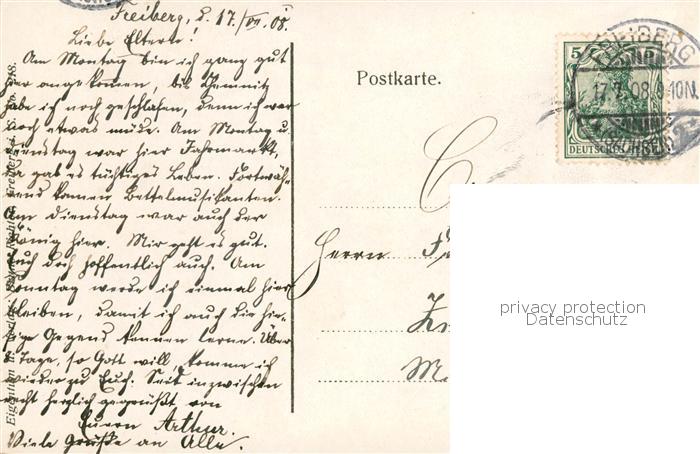 Freiberg, d. 17./VII. 08.
Liebe Eltern!
Am Montag bin ich ganz gut
hier angekommen, bis Chemnitz
habe ich noch geschlafen, denn ich war
noch etwas müde. Am Montag u.
Dienstag war hier Jahrmarkt,
da gab es tüchtiges Leben. Fortwäh-
rend kamen Bettelmusikanten.
Am Dienstag war auch der
König hier. Mir geht es gut.
Euch doch hoffentlich auch. Am
Sonntag werde ich einmal hier
bleiben, damit ich auch die hie-
sige Gegend kennen lerne. Über
8 Tage, so Gott will, komme ich
wieder zu Euch. Seit inzwischen
recht herzlich gegrüßt von
Eurem Arthur.
Viele Grüße an Alle.
Postkarte.
Herrn
FREIBERG
17.7.08. 9-10N.
5 5
DEUTSCHES REICH
privacy protection
Datenschutz